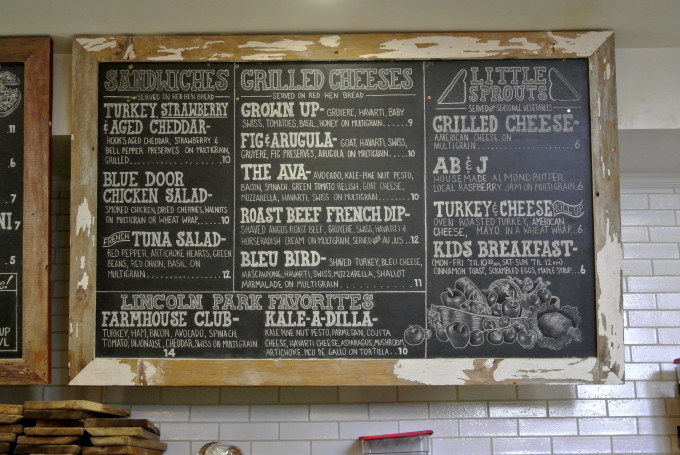 11
.6
.7
NI
7
UP
VL
SANDWICHES
SERVED ON RED HEN BREAD
TURKEY, STRAWBERRY
& AGED CHEDDAR-
HOOK'S AGED CHEDDAR, STRAWBERRY &
BELL PEPPER PRESERVES ON MULTIGRAIN,
GRILLED..........10
BLUE DOOR
CHICKEN SALAD-
SMOKED CHICKEN, DRIED CHERRIES, WALNUTS
ON MULTIGRAIN OR WHEAT WRAP.....10
FRENCH TUNA SALAD-
RED PEPPER, ARTICHOKE HEARTS, GREEN
BEANS, RED ONION, BASIL ON
MULTIGRAIN..........12
GRILLED CHEESES
SERVED ON RED HEN BREAD
GROWN UP- GRUYERE, HAVARTI, BABY
SWISS, TOMATOES, BASIL, HONEY ON MULTIGRAIN.....9
FIG & ARUGULA- GOAT, HAVARTI, SWISS,
GRUYERE, FIG PRESERVES, ARUGULA ON MULTIGRAIN.....10
THE AVA- AVOCADO, KALE-PINE NUT PESTO,
BACON, SPINACH, GREEN TOMATO RELISH, GOAT CHEESE,
MOZZARELLA, HAVARTI, SWISS ON MULTIGRAIN.....10
ROAST BEEF FRENCH DIP-
SHAVED ANGUS ROAST BEEF, GRUYERE, SWISS, HAVARTI &
HORSERADISH CREAM ON MULTIGRAIN, SERVED W/ AU JUS...12
BLEU BIRD- SHAVED TURKEY, BLEU CHEESE,
MASCARPONE, HAVARTI, SWISS, MOZZARELLA, SHALLOT
MARMALADE ON MULTIGRAIN..........11
LITTLE
SPROUTS
SERVED W/ SEASONAL VEGETABLES
GRILLED CHEESE-
AMERICAN CHEESE ON
MULTIGRAIN..........6
AB & J
HOUSEMADE ALMOND BUTTER
LOCAL RASPBERRY JAM ON MULTIGRAIN.6
TURKEY & CHEESE
OVEN ROASTED TURKEY, AMERICAN
CHEESE, MAYO IN A WHEAT WRAP..6
KIDS BREAKFAST-
(MON-FRI 'TIL 10:30AM, SAT-SUN 'TIL 12PM)
CINNAMON TOAST, SCRAMBLED EGGS, MAPLE SYRUP...6
LINCOLN PARK FAVORITES
FARMHOUSE CLUB-
TURKEY, HAM, BACON, AVOCADO, SPINACH,
TOMATO, DIJONAISE, CHEDDAR, SWISS ON MULTIGRAIN
14
KALE-A-DILLA-
KALE PINE NUT PESTO, PARMESAN, COJITA
CHEESE, HAVARTI CHEESE, ASPARAGUS, MUSHROOM
ARTICHOKE, PICO DE GALLO ON TORTILLA..10